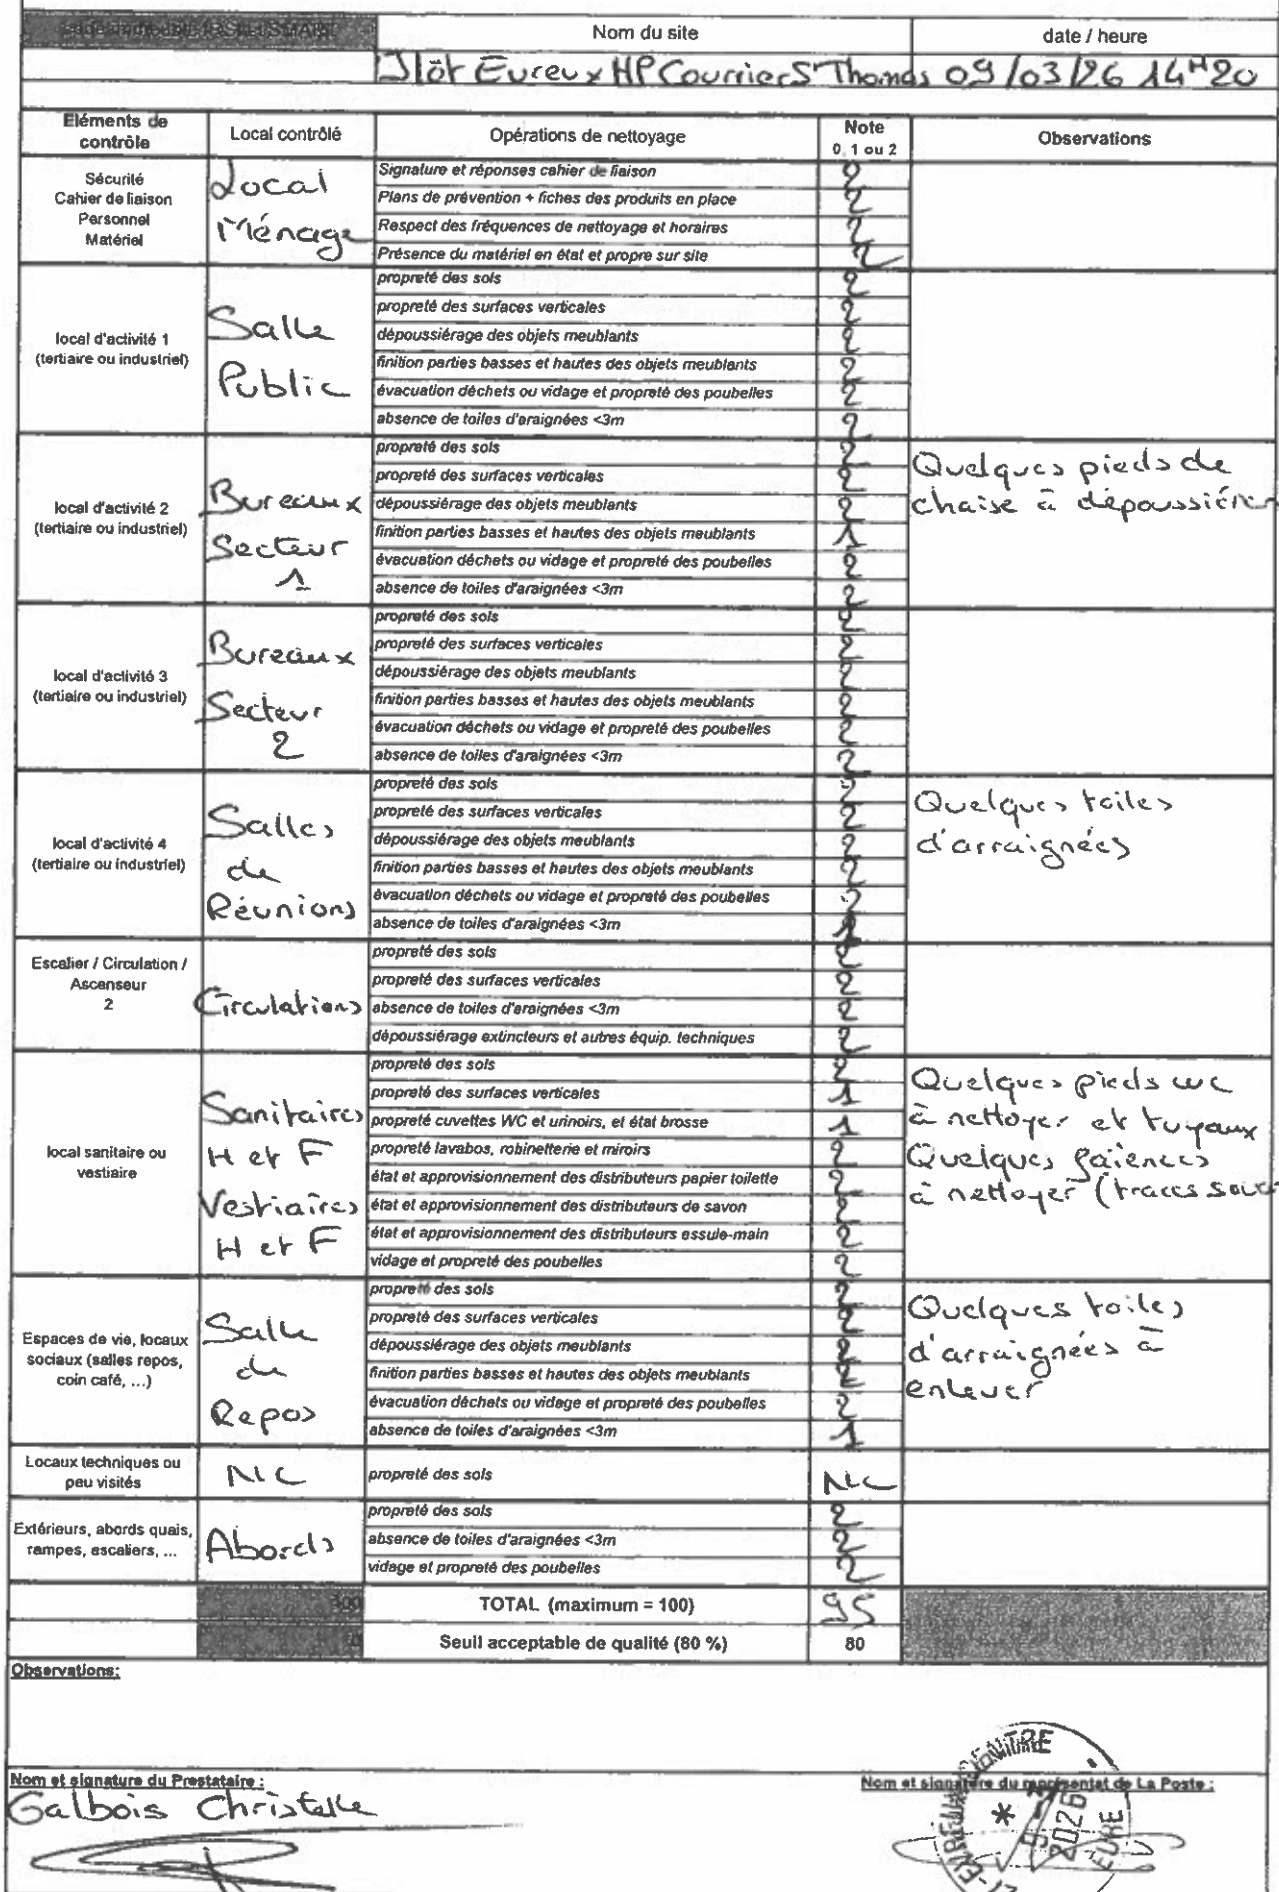 Nom du site date / heure
Ilôt Evreux HP Courrier St Thomas 09/03/26 14H20
Eléments de contrôle Local contrôlé Opérations de nettoyage Note 0, 1 ou 2 Observations
Sécurité
Cahier de liaison
Personnel
Matériel
Local
Ménage
Signature et réponses cahier de liaison 2
Plans de prévention + fiches des produits en place 2
Respect des fréquences de nettoyage et horaires 2
Présence du matériel en état et propre sur site 2
local d'activité 1
(tertiaire ou industriel)
Salle
Public
propreté des sols 2
propreté des surfaces verticales 2
dépoussiérage des objets meublants 2
finition parties basses et hautes des objets meublants 2
évacuation déchets ou vidage et propreté des poubelles 2
absence de toiles d'araignées <3m 2
local d'activité 2
(tertiaire ou industriel)
Bureaux
Secteur
1
propreté des sols 2
propreté des surfaces verticales 2
dépoussiérage des objets meublants 2
finition parties basses et hautes des objets meublants 1
évacuation déchets ou vidage et propreté des poubelles 2
absence de toiles d'araignées <3m 2
Quelques pieds de
chaise à dépoussiérer
local d'activité 3
(tertiaire ou industriel)
Bureaux
Secteur
2
propreté des sols 2
propreté des surfaces verticales 2
dépoussiérage des objets meublants 2
finition parties basses et hautes des objets meublants 2
évacuation déchets ou vidage et propreté des poubelles 2
absence de toiles d'araignées <3m 2
local d'activité 4
(tertiaire ou industriel)
Salles
de
Réunions
propreté des sols 2
propreté des surfaces verticales 2
dépoussiérage des objets meublants 2
finition parties basses et hautes des objets meublants 2
évacuation déchets ou vidage et propreté des poubelles 2
absence de toiles d'araignées <3m 1
Quelques toiles
d'arraignées
Escalier / Circulation /
Ascenseur
2
Circulations
propreté des sols 2
propreté des surfaces verticales 2
absence de toiles d'araignées <3m 2
dépoussiérage extincteurs et autres équip. techniques 2
local sanitaire ou
vestiaire
Sanitaires
H et F
Vestiaires
H et F
propreté des sols 2
propreté des surfaces verticales 1
propreté cuvettes WC et urinoirs, et état brosse 1
propreté lavabos, robinetterie et miroirs 2
état et approvisionnement des distributeurs papier toilette 2
état et approvisionnement des distributeurs de savon 2
état et approvisionnement des distributeurs essuie-main 2
vidage et propreté des poubelles 2
Quelques pieds wc
à nettoyer et tuyaux
Quelques faïences
à nettoyer (traces
Espaces de vie, locaux
sociaux (salles repos,
coin café, ...)
Salle
de
Repos
propreté des sols 2
propreté des surfaces verticales 2
dépoussiérage des objets meublants 2
finition parties basses et hautes des objets meublants 2
évacuation déchets ou vidage et propreté des poubelles 2
absence de toiles d'araignées <3m 1
Quelques toiles
d'arraignées à
enlever
Locaux techniques ou
peu visités
NC
propreté des sols NC
Extérieurs, abords quais,
rampes, escaliers, ...
Abords
propreté des sols 2
absence de toiles d'araignées <3m 2
vidage et propreté des poubelles 2
100 TOTAL (maximum = 100) 95
Seuil acceptable de qualité (80 %) 80
Observations:
Nom et signature du Prestataire : Nom et signature du représentat de La Poste :
Galbois Christelle
CENTRE
2026
EURE